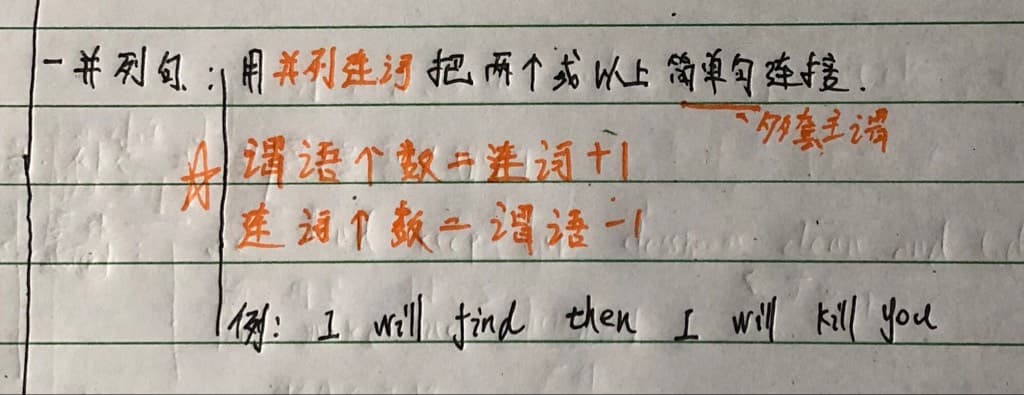 一并列句：用并列连词把两个或以上简单句连接.
多套主谓
☆谓语个数=连词+1
连词个数=谓语-1
例: I will find then I will kill you